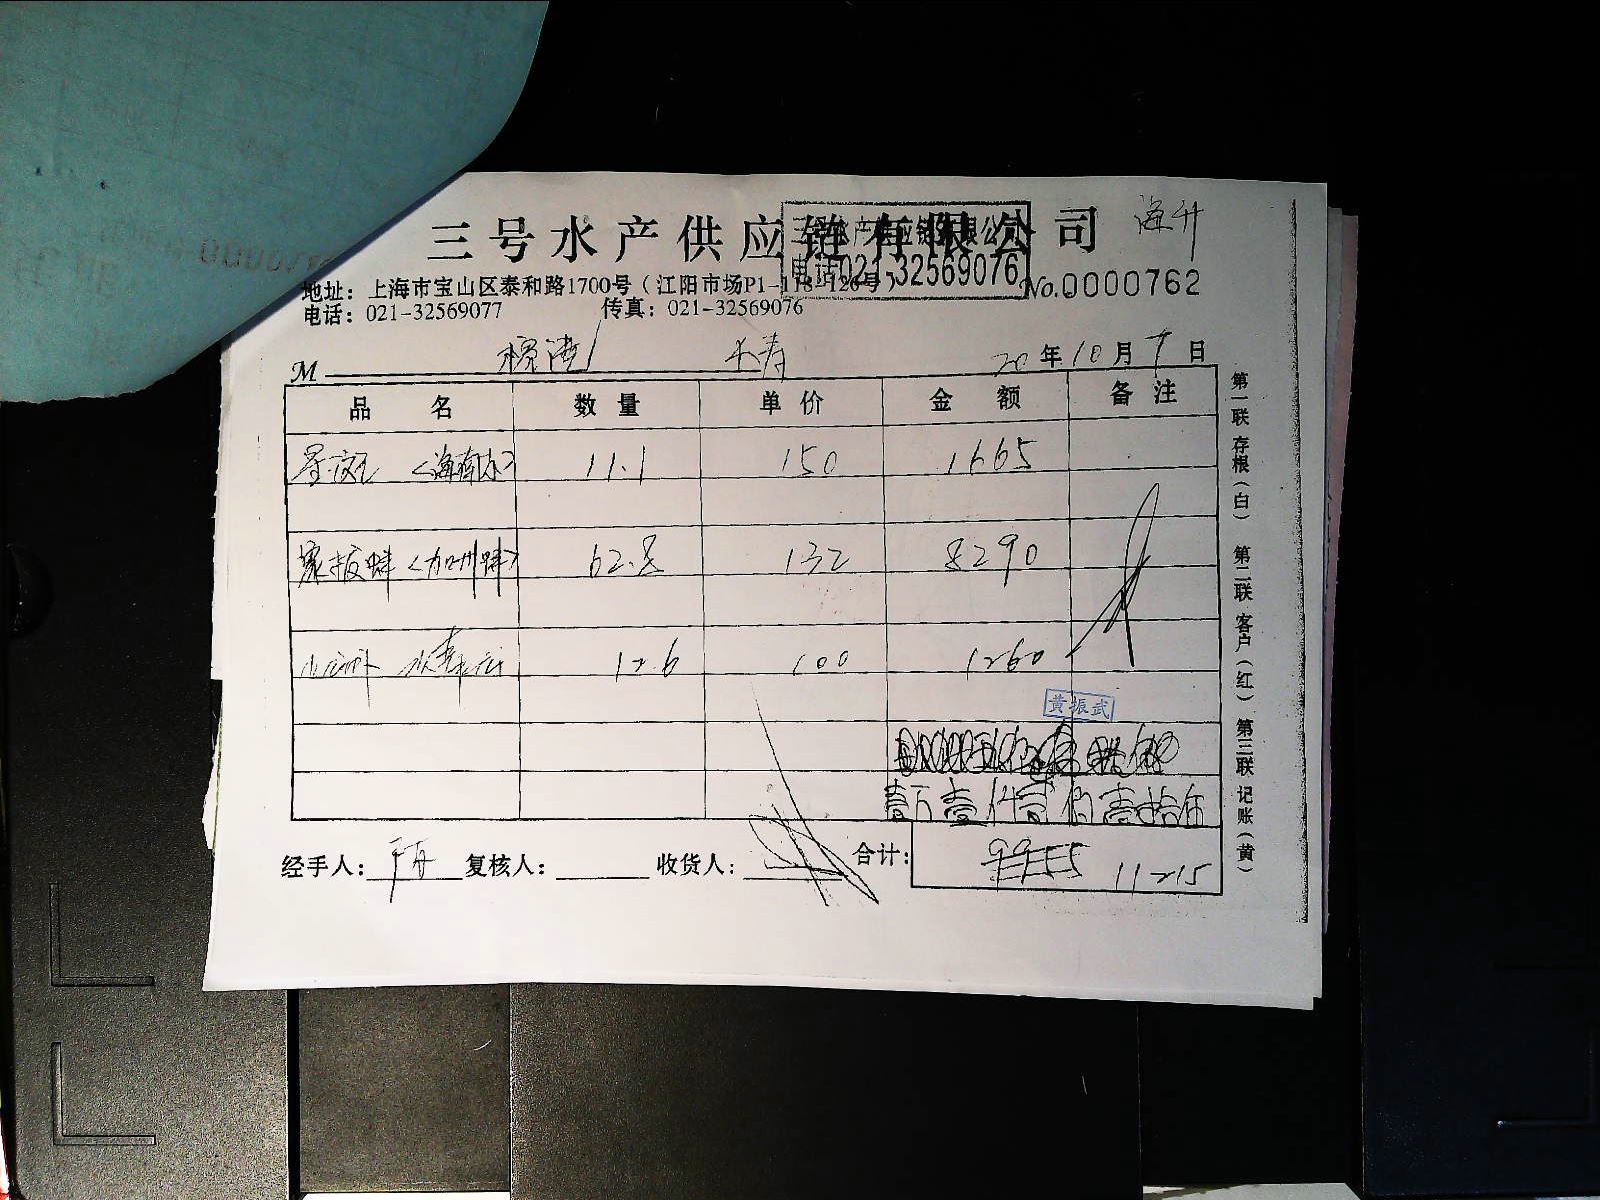 三号水产供应链有限公司
三号水产供应链有限公司
电话021-32569076
海升
地址：上海市宝山区泰和路1700号（江阳市场P1-118-126号）
No.0000762
电话：021-32569077 传真：021-32569076
M 长寿 20年10月9日
品名 数量 单价 金额 备注
星斑 <海南水> 11.1 150 1665
象拔蚌 <加州蚌> 62.8 132 8290
12.6 100 1260
黄振武
壹万壹仟贰佰壹拾伍
经手人： 复核人： 收货人： 合计： 9955 11215
第一联 存根（白） 第二联 客户（红） 第三联 记账（黄）